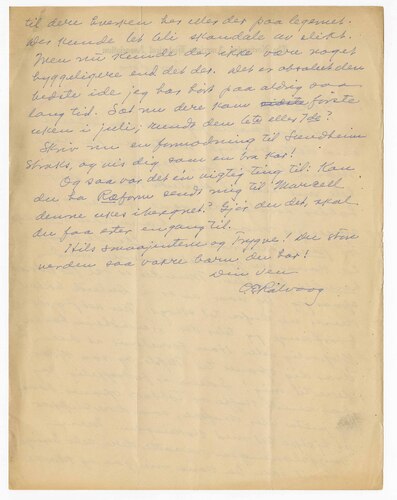 til dere Evensen hos eller der paa legemet.
Der kunde let bli skandale av slikt.
Men nu kunde der ikke være noget
hyggeligere end det der. Det er absolut den
bedste ide jeg har hørt paa aldrig saa
lang tid. Sæt nu dere kom første
uken i juli, rundt den 1ste eller 7de?
Skriv nu en formodning til Sundheim
straks, og vis dig som en bra kar!
Og saa var det en vigtig ting til: Kan
du ha Reform sendt mig til Marcell
denne uken iberegnet? Gjør du det, skal
du faa eter engang til.
Hils smaajentene og Trygve! Du store
verden saa vakre barn du har!
Din ven
O E Rølvaag